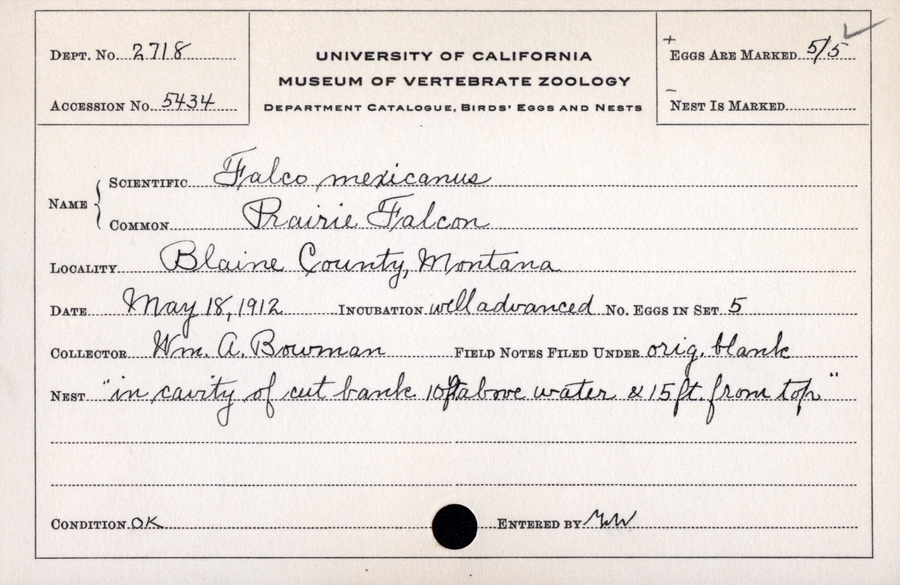 Dept. No. 2718
Accession No. 5434
UNIVERSITY OF CALIFORNIA
MUSEUM OF VERTEBRATE ZOOLOGY
Department Catalogue, Birds' Eggs and Nests
+ Eggs Are Marked 5/5 ✓
– Nest Is Marked
Name { Scientific Falco mexicanus
Common Prairie Falcon
Locality Blaine County, Montana
Date May 18, 1912 Incubation well advanced No. Eggs in Set 5
Collector Wm. A. Bowman Field Notes Filed Under orig. blank
Nest "in cavity of cut bank 10ft above water & 15 ft. from top"
Condition OK Entered by